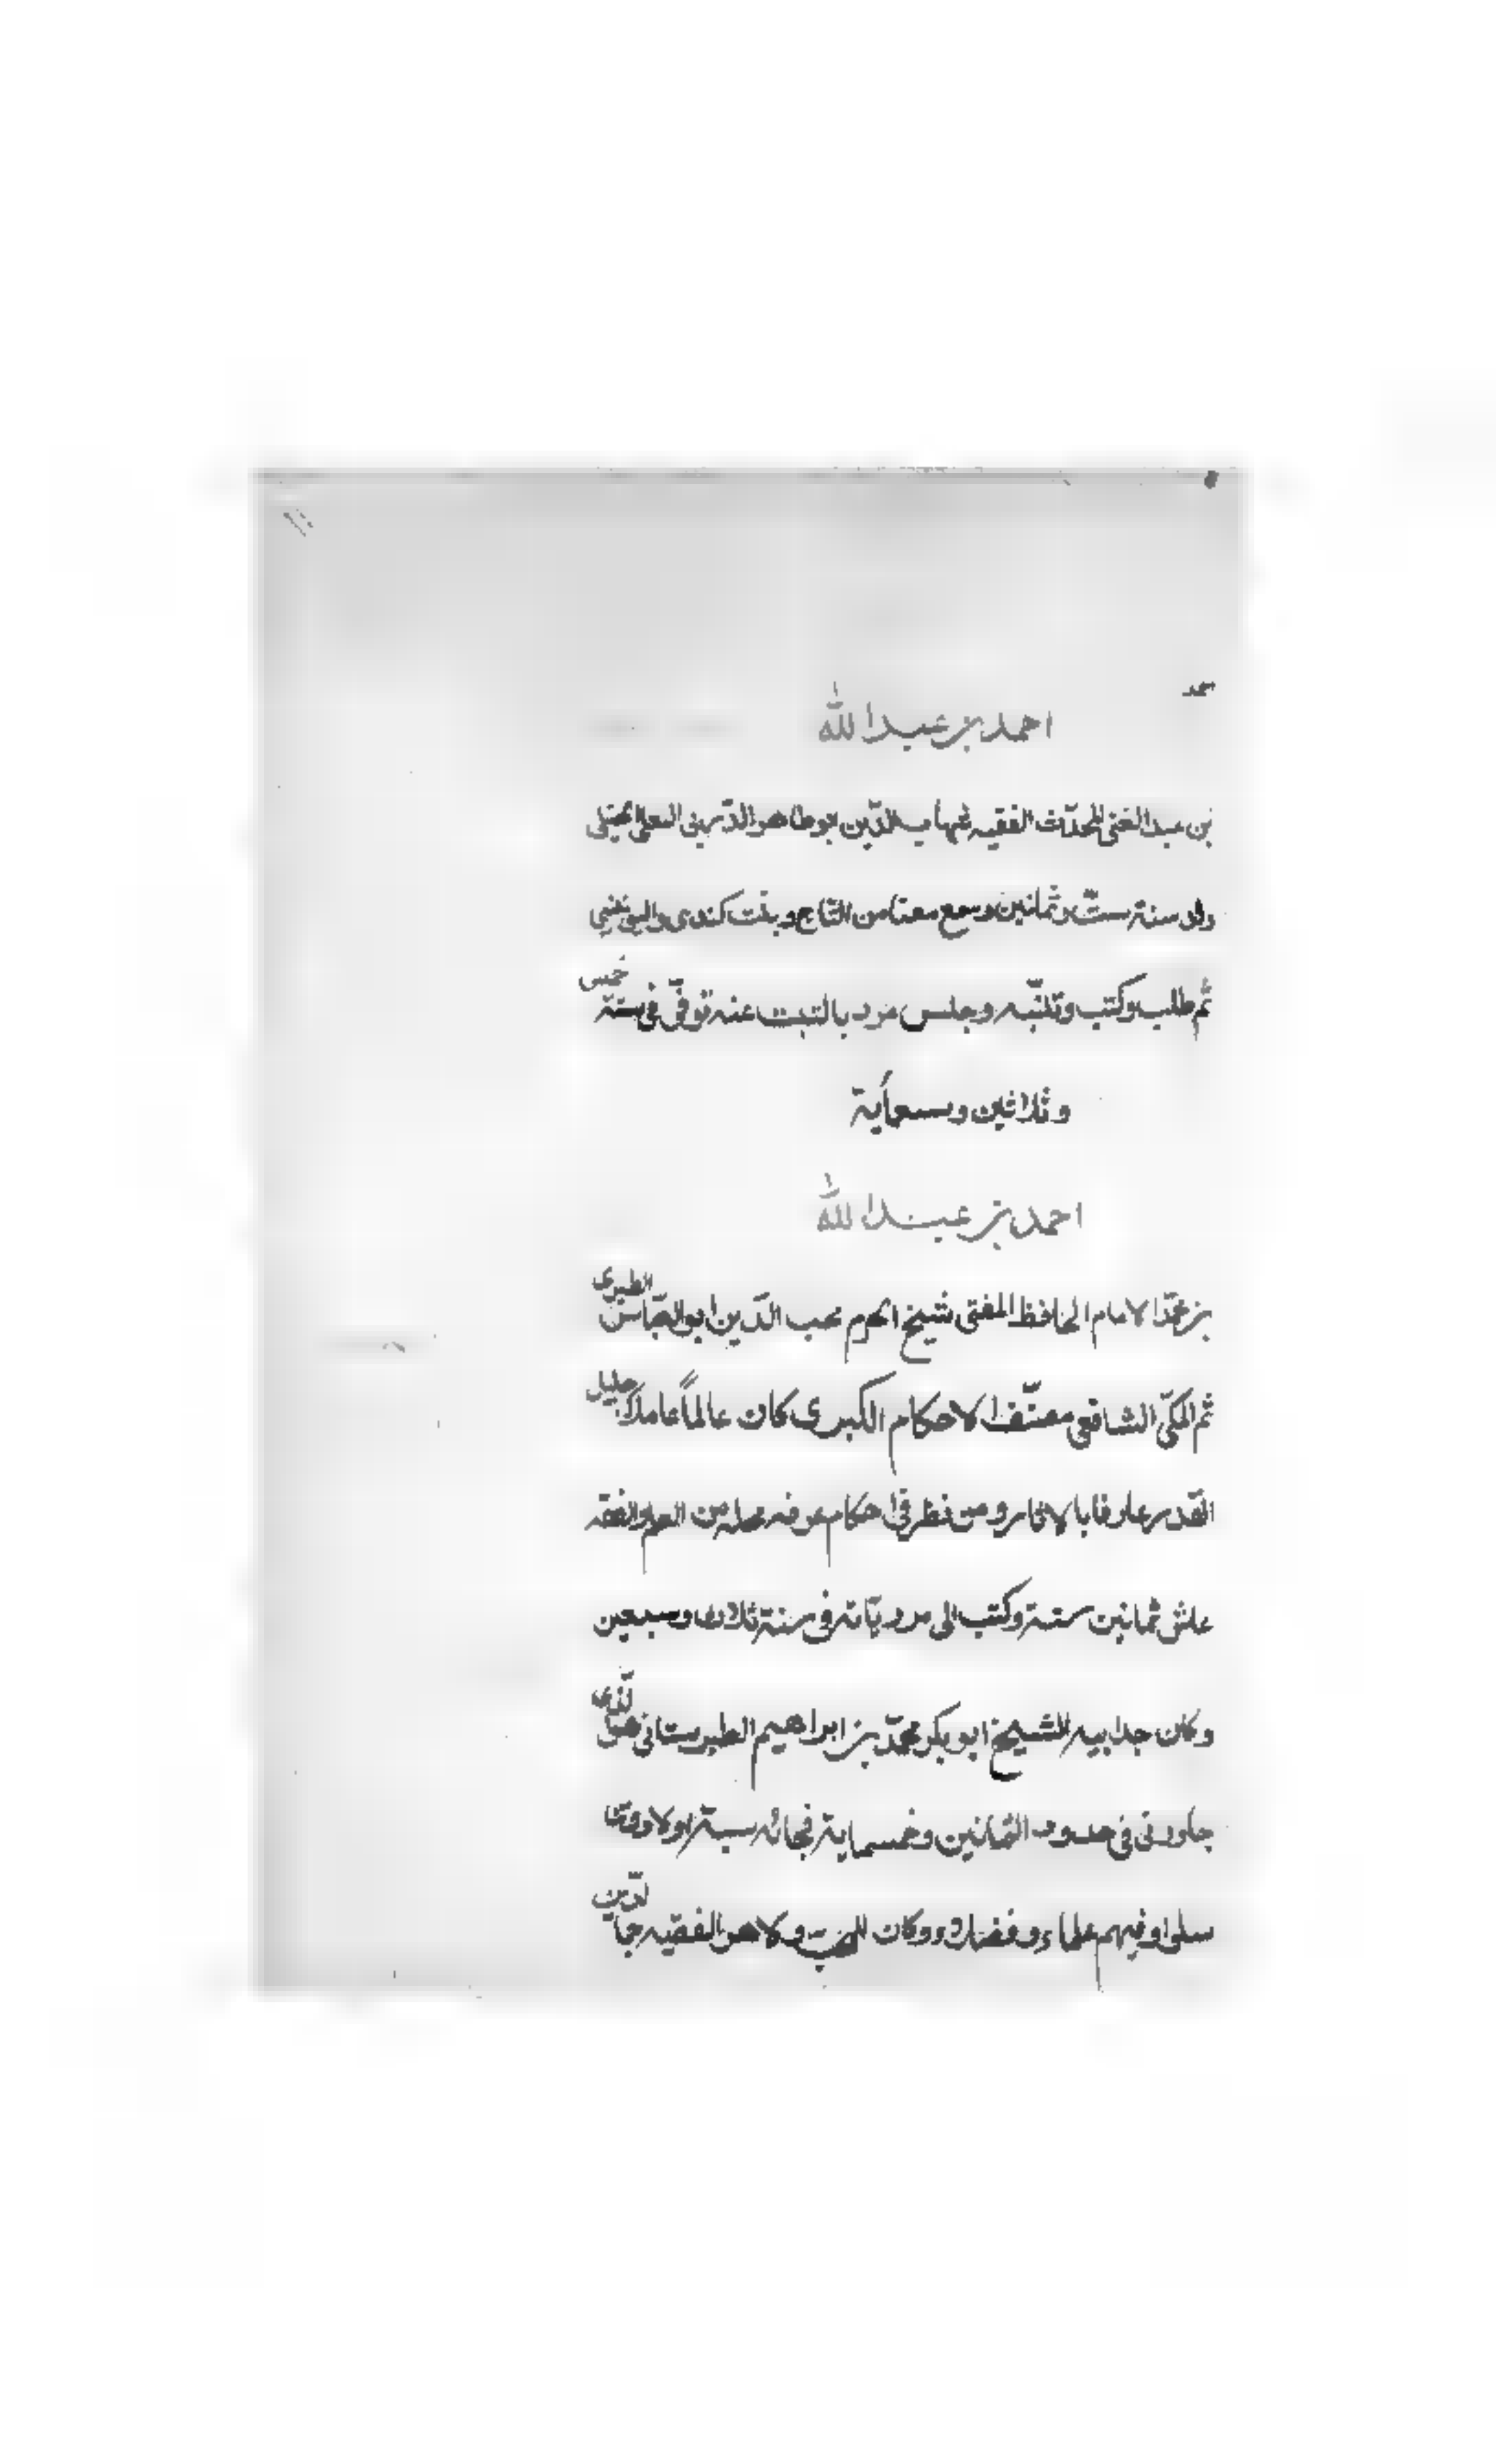 احمد بن عبد الله
بن عبد الغني المحدّث الفقيه شهاب الدّين ابو طاهر الدّريبي البعلي الحنبلي
ولد سنة ستّ وثمانين وسمع معنا من التاج وبنت كندى واليونيني
ثم طلب وكتب وتنبّه وجلس بالتبت عنه توفّي في سنة خمس
وثلاثين وسبعماية
احمد بن عبد الله
بن محمّد الامام الحافظ المفتى شيخ الحرم محب الدّين ابو العبّاس الطبرى
ثم المكيّ الشافعي مصنّف الاحكام الكبرى كان عالماً عاملا جليل
القدر عارفا بالاثار ومن نظر في احكام عرف محله من العلم والفقه
عاش ثمانين سنة وكتب الى مروياته في سنة ثلاث وسبعين
وكان جد ابيه الشيخ ابو بكر محمّد بن ابراهيم الطبرستانى هو الّذى
جاور في حدود الثمانين وخمسماية فجائه ستة اولاد
وفيهم علماء وفضلاء وكان للمحب ولد هو الفقيه جمال الّدين